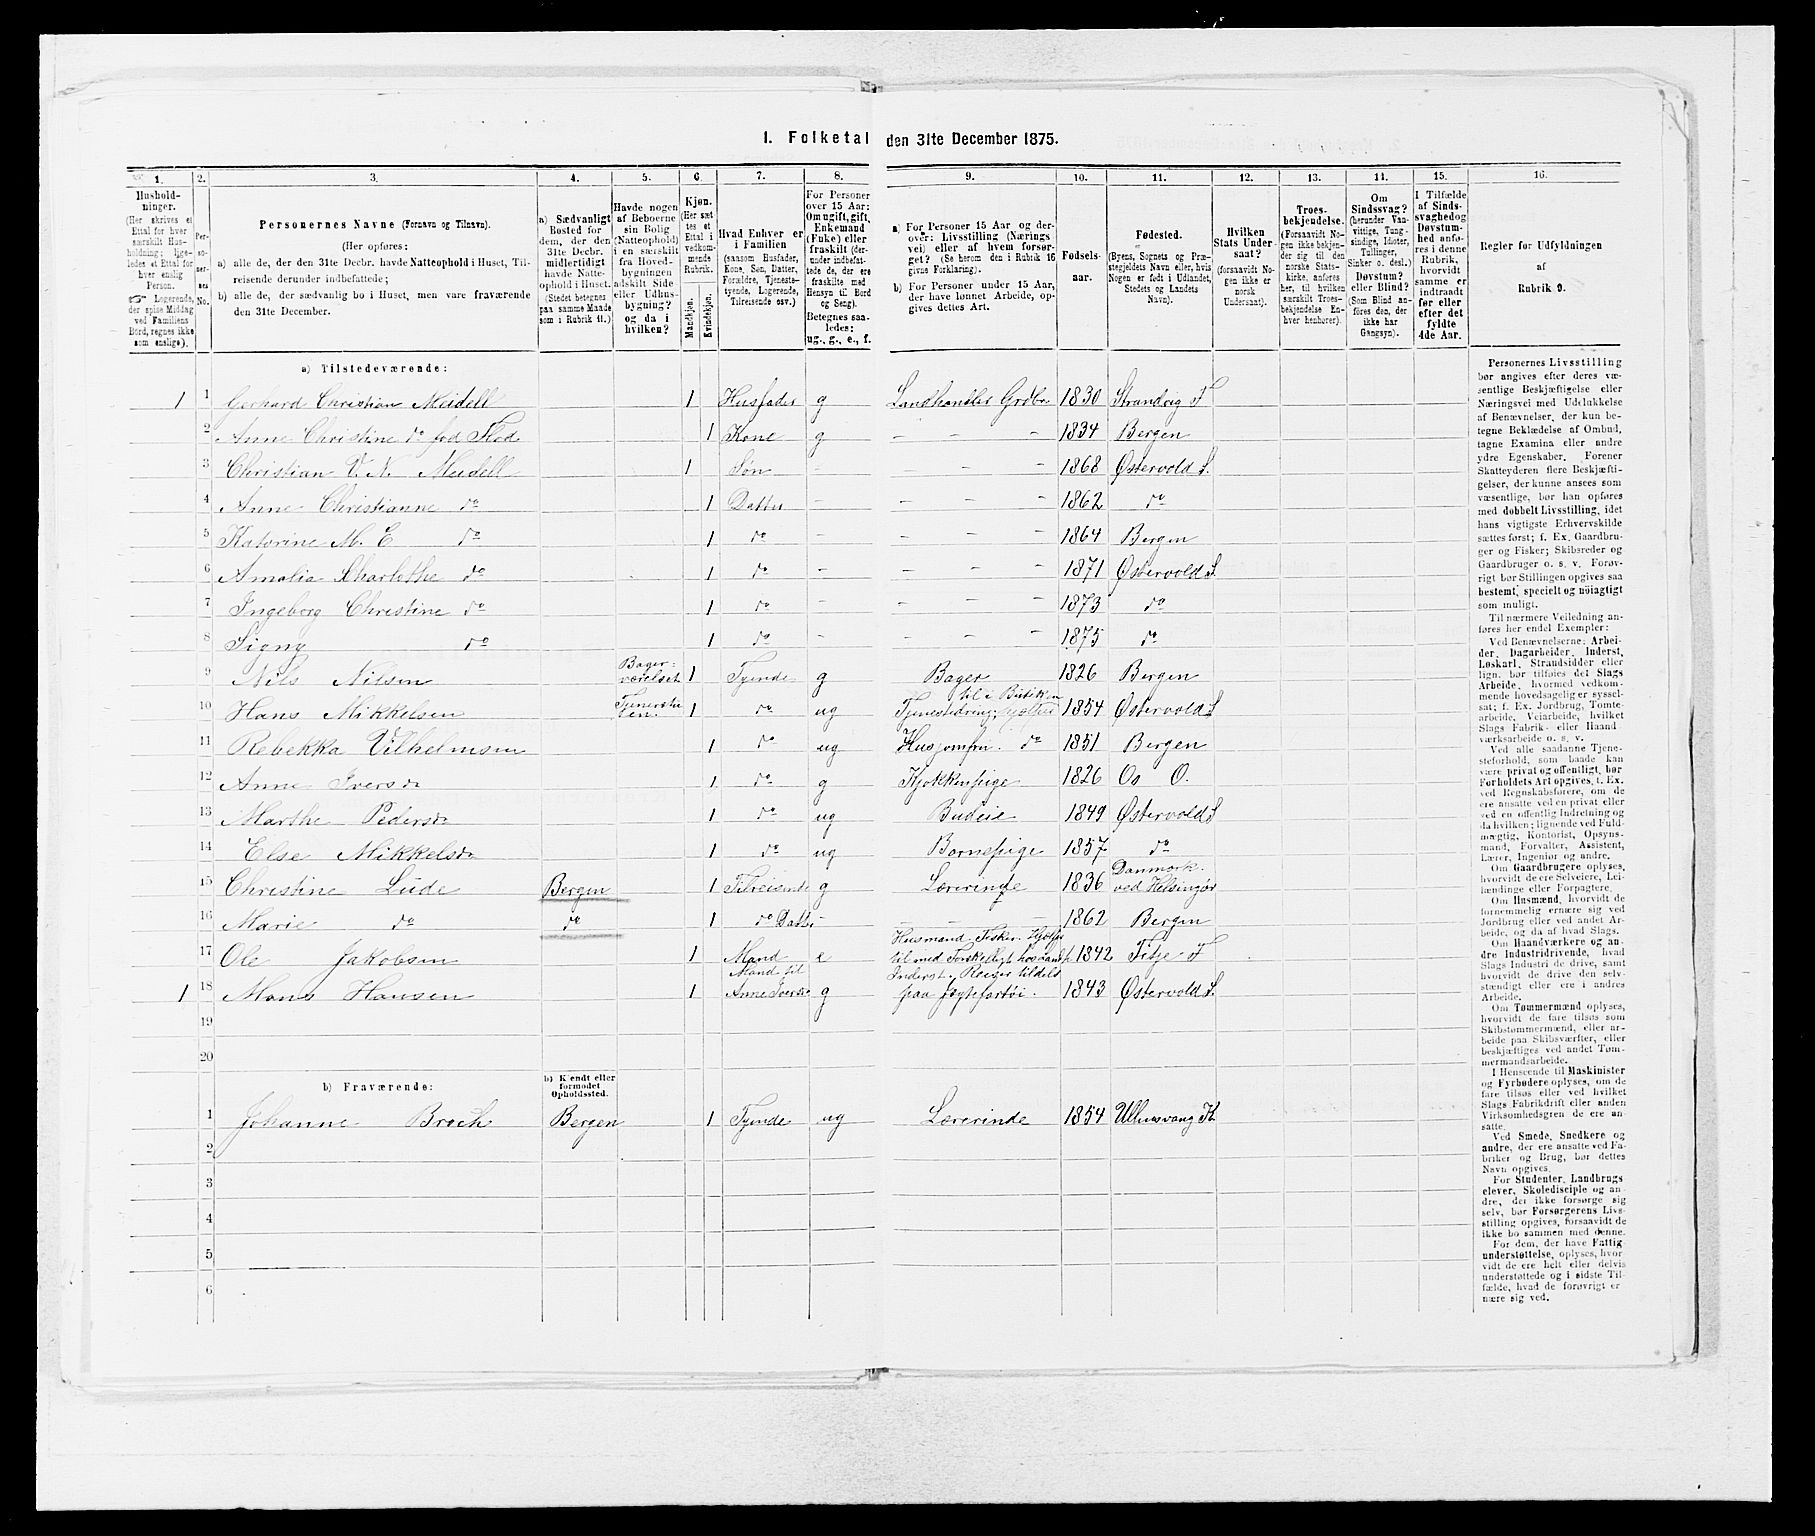 I. Folketal den 31te December 1875.
1. 2. 3. 4. 5. 6. 7. 8. 9. 10. 11. 12. 13. 14. 15. 16.
Hushold-
ninger.
(Her skrives et
Ettal for hver
særskilt Hus-
holdning; lige-
ledes et Ettal for
hver enslig
Person.
☞ Logerende,
der spise Middag
ved Familiens
Bord, regnes ikke
som enslige).
Per-
so-
ner-
nes
No.
Personernes Navne (Fornavn og Tilnavn).
(Her opføres:
a) alle de, der den 31te Decbr. havde Natteophold i Huset, Til-
reisende derunder indbefattede;
b) alle de, der sædvanlig bo i Huset, men vare fraværende
den 31te December.
a) Sædvanligt
Bosted for
dem, der den
31te Decbr.
midlertidigt
havde Natte-
ophold i Huset.
(Stedet betegnes
paa samme Maade
som i Rubrik 11.)
Havde nogen
af Beboerne
sin Bolig
(Natteophold)
i en særskilt
fra Hoved-
bygningen
adskilt Side
eller Udhus-
bygning?
og da i
hvilken?
Kjøn.
(Her sæt-
tes et
Ettal i
vedkom-
mende
Rubrik.
Mandkjøn.
Kvindekjøn.
Hvad Enhver er
i Familien
(saasom Husfader,
Kone, Søn, Datter,
Forældre, Tjeneste-
tyende, Logerende,
Tilreisende osv.)
For Personer
over 15 Aar:
Om ugift, gift,
Enkemand
(Enke) eller
fraskilt (der-
under indbefat-
tede de, der ere
fraskilte med
Hensyn til Bord
og Seng).
Betegnes saa-
ledes:
ug., g., e., f.
a) For Personer 15 Aar og der-
over: Livsstilling (Nærings-
vei) eller af hvem forsør-
get? (Se herom den i Rubrik 16
givne Forklaring).
b) For Personer under 15 Aar,
der have lønnet Arbeide, op-
gives dettes Art.
Fødsels-
aar.
Fødested.
(Byens, Sognets og Præ-
stegjeldets Navn eller, hvis
Nogen er født i Udlandet,
Stedets og Landets
Navn).
Hvilken
Stats Under-
saat?
(forsaavidt No-
gen ikke er
norsk
Undersaat).
Troes-
bekjendelse.
(Forsaavidt No-
gen ikke bekjen-
der sig til den
norske Stats-
kirke, anføres
her, til hvilken
særskilt Troes-
bekjendelse En-
hver henhører).
Om
Sindssvag?
(herunder Van-
vittige, Tung-
sindige, Idioter,
Tullinger,
Sinker o. desl.)
Døvstum?
eller Blind?
(Som Blind an-
føres den, der
ikke har
Gangsyn).
I Tilfælde
af Sinds-
svaghed og
Døvstum-
hed anfø-
res i denne
Rubrik,
hvorvidt
samme er
indtraadt
før eller
efter det
fyldte
4de Aar.
Regler for Udfyldningen
af
Rubrik 9.
a) Tilstedeværende:
1 1 Gerhard Christian Meidell 1 Husfader g Landhandler Grdbr. 1830 Strandvig F
2 Anne Christine do fød Flod 1 Kone g – – – 1834 Bergen
3 Christian V. N. Meidell 1 Søn – – – – 1868 Østervold S.
4 Anne Christianne do 1 Datter – – – – 1862 do
5 Katorine M. E do 1 do – – – – 1864 Bergen
6 Amalia Charlothe do 1 do – – – – 1871 Østervold S.
7 Ingeborg Christine do 1 do – – – – 1873 do
8 Signy do 1 do – – – – 1875 do
9 Nils Nilsen Bager-værelset 1 Tyende g Bager 1826 Bergen
10 Hans Mikkelsen 1 do ug til i Butikken 1854 Østervold S
11 Rebekka Vilhelmsen 1 do ug Husjomfru. do 1851 Bergen
12 Anne Iversdr 1 do g Kjøkkenpige 1826 Os O.
13 Marthe Pedersdr 1 do ug Budeie 1849 Østervold S
14 Else Mikkelsdr 1 do ug Barnepige 1857 do
15 Christine Lude Bergen 1 Tilreisende g Lærerinde 1836 Danmark ved Helsingør
16 Marie do do 1 do Datter – – – – 1862 Bergen
17 Ole Jakobsen 1 Mand e Husmand Fisker. Hjælper til med Forskjelligt hos Landh. 1842 Fitje F
1 18 Mons Hansen 1 Mand til Anne Iversdr g Inderst. Reiser tildels paa Jægtefartøi. 1843 Østervold S.
19
20
b) Fraværende:
b) Kjendt eller
formodet
Opholdssted.
1 Johanne Broch Bergen 1 Tyende ug Lærerinde 1854 Ullensvang K.
2
3
4
5
6
Personernes Livsstilling
bør angives efter deres væ-
sentlige Beskjæftigelse eller
Næringsvei med Udelukkelse
af Benævnelser, der kun be-
tegne Beklædelse af Ombud,
tagne Examina eller andre
ydre Egenskaber. Forener
Skatteyderen flere Beskjæfti-
gelser, der kunne ansees som
væsentlige, bør han opføres
med dobbelt Livsstilling, idet
hans vigtigste Erhvervskilde
sættes først; f. Ex. Gaardbru-
ger og Fisker; Skibsreder og
Gaardbruger o. s. v. Forøv-
rigt bør Stillingen opgives saa
bestemt, specielt og nøiagtigt
som muligt.
Til nærmere Veiledning an-
føres her endel Exempler:
Ved Benævnelserne: Arbei-
der, Dagarbeider, Inderst,
Løskarl, Strandsidder eller
lign. bør tilføies det Slags
Arbeide, hvormed vedkom-
mende hovedsagelig er syssel-
sat; f. Ex. Jordbrug, Tomte-
arbeide, Veiarbeide, hvilket
Slags Fabrik- eller Haand-
værksarbeide o. s. v.
Ved alle saadanne Tjene-
steforhold, som baade kan
være privat og offentligt, bør
Forholdets Art opgives, t. Ex.
ved Regnskabsførere, om de
ere ansatte ved en privat eller
ved en offentlig Indretning og
da hvilken; lignende ved Fuld-
mægtig, Kontorist, Opsyns-
mand, Forvalter, Assistent,
Lærer, Ingeniør og andre.
Om Gaardbrugere oplyses,
hvorvidt de ere Selveiere, Lei-
lændinge eller Forpagtere.
Om Husmænd, hvorvidt de
fornemmelig ernære sig ved
Jordbrug eller ved andet Ar-
beide, og da af hvad Slags.
Om Haandværkere og an-
dre Industridrivende, hvad
Slags Industri de drive, samt
hvorvidt de drive den selv-
stændigt eller ere i andres
Arbeide.
Om Tømmermænd oplyses,
hvorvidt de fare tilsøs som
Skibstømmermænd, eller ar-
beide paa Skibsværfter, eller
beskjæftiges ved andet Tøm-
mermandsarbeide.
I Henseende til Maskinister
og Fyrbødere oplyses, om de
fare tilsøs eller ved hvilket
Slags Fabrikdrift eller anden
Virksomhedsgren de ere an-
satte.
Ved Smede, Snedkere og
andre, der ere ansatte ved Fa-
briker og Brug, bør dettes
Navn opgives.
For Studenter, Landbrugs-
elever, Skoledisciple og an-
dre, der ikke forsørge sig
selv, bør Forsørgerens Livs-
stilling opgives, forsaavidt de
ikke bo sammen med denne.
For dem, der have Fattig-
understøttelse, oplyses, hvor-
vidt de ere helt eller delvis
understøttede og i sidste Til-
fælde, hvad de forøvrigt er-
nære sig ved.